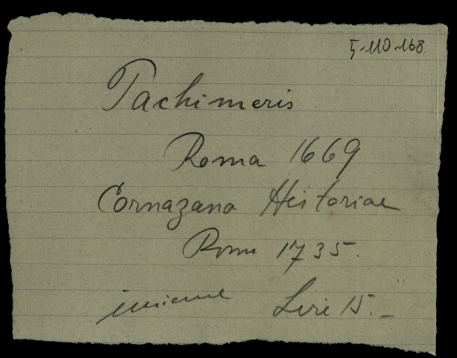 5-110-168
Pachimeris
Roma 1669
Cornazana Historiae
Rome 1735.
insieme Lire 15.-